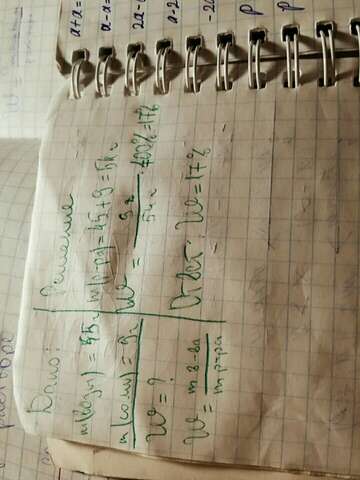 Дано:
m(воды) = 45г
m(соли) = 9г
W = ?
W = m в-ва / m р-ра
Решение
m(р-ра) = 45 + 9 = 54г
W = 9г / 54г · 100% = 17%
Ответ: W = 17%
a+a=
a-a=
2a-
a-2
-2
p
p
W =